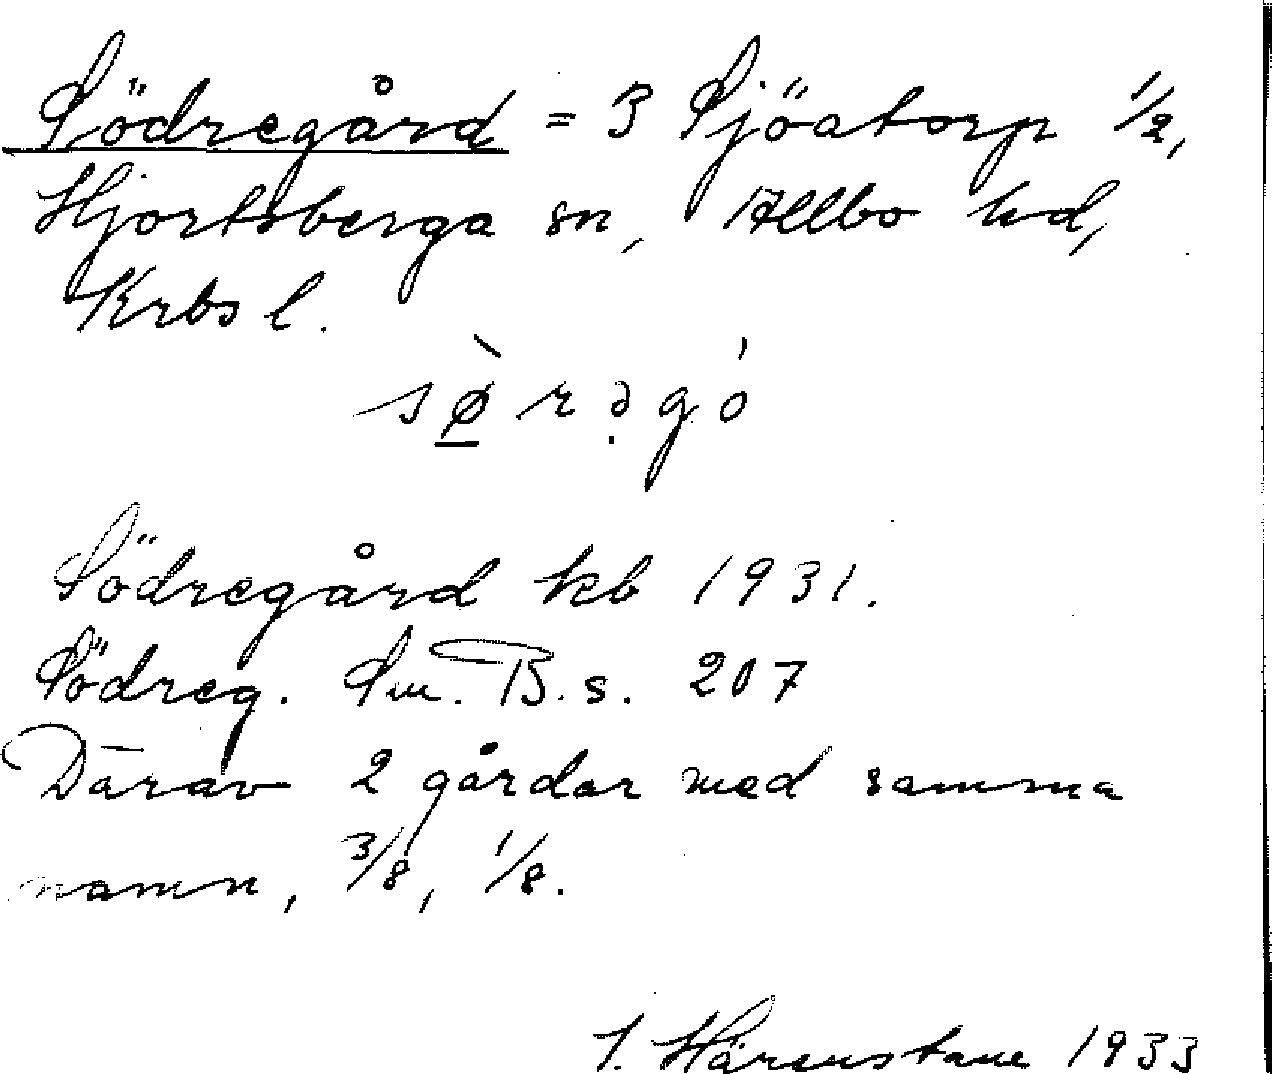 Södregård = 3 Sjöatorp 1/2,
Hjortsberga sn, Allbo hd,
Krbs l.
sø̲̀rə̣gó
Södregård kb 1931.
Södreg. Sm. B. s. 207
Därav 2 gårdar med samma
namn, 3/8, 1/8.
1933